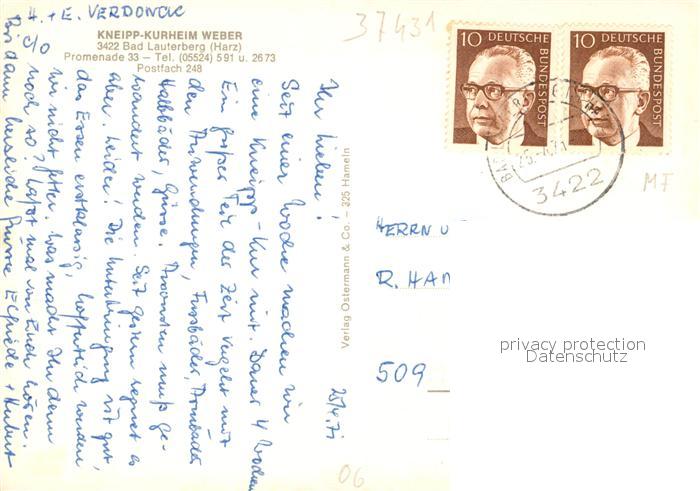 H. + E. VERDONCK
KNEIPP-KURHEIM WEBER
3422 Bad Lauterberg (Harz)
Promenade 33 – Tel. (05524) 591 u. 2673
Postfach 248
37431
10 DEUTSCHE BUNDESPOST
10 DEUTSCHE BUNDESPOST
3422
MF
25/4.71
Ihr Lieben!
Seit einer Woche machen wir
eine Kneipp-Kur mit. Dauer 4 Wochen
Ein großer Teil der Zeit vergeht mit
den Anwendungen, Fussbäder, Armbäder
Halbbäder, Güsse. Ansonsten muß ge-
wandert werden. Seit gestern regnet es
aber leider! Die Unterbringung ist gut,
das Essen erstklassig, hoffentlich werden
wir nicht fetter. Was macht Ihr denn
noch so? Laßt mal von Euch hören.
Bis dann herzliche Grüsse Elfriede + Hubert
c/o
Verlag Ostermann & Co. – 325 Hameln
HERRN U
R. HAN
509
06
privacy protection
Datenschutz